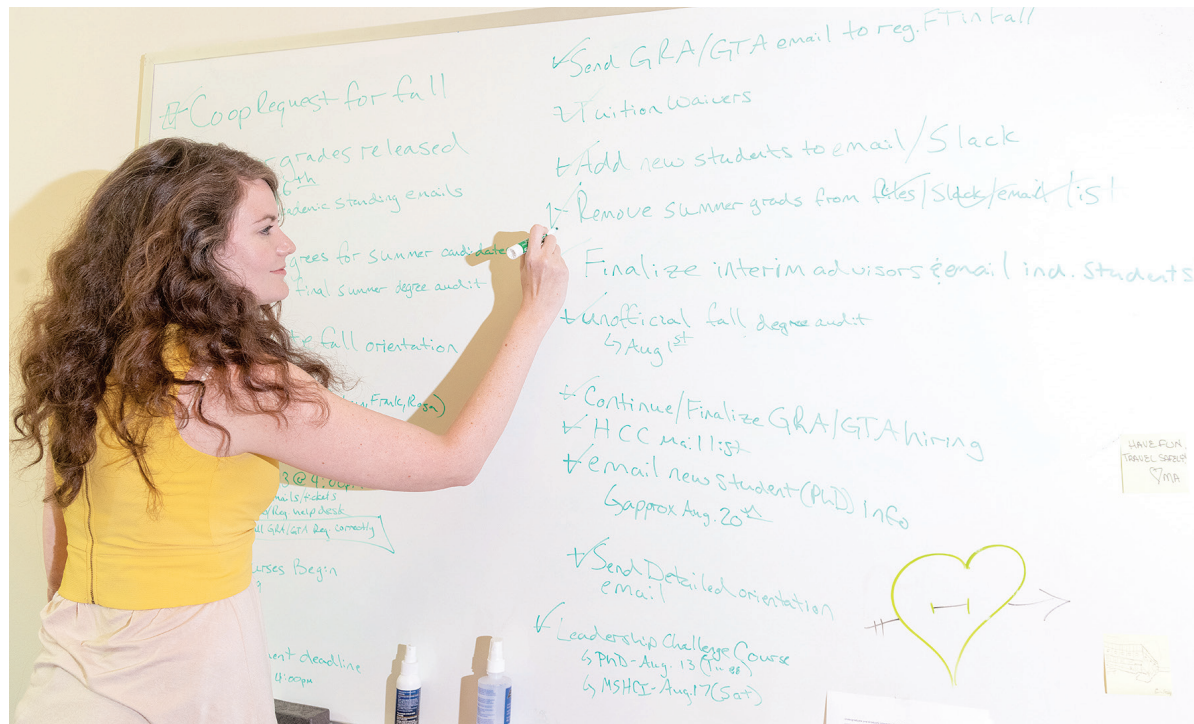 Coop Request for fall
grades released
6th
standing emails
grees for summer candidate
final summer degree audit
fall orientation
Frank, Rosa)
3 @ 4:00pm
mails/tickets
Reg. help desk
GRA/GTA Reg. correctly
urses Begin
ent deadline
4:00pm
Send GRA/GTA email to reg. FT in Fall
Tuition Waivers
Add new students to email/Slack
Remove summer grads from files/Slack/email list
Finalize interim advisors & email ind. students
unofficial fall degree audit
↳ Aug 1st
Continue/Finalize GRA/GTA hiring
HCC Mail list
email new student (PhD) Info
↳ approx Aug. 20th
Send Detailed orientation
email
Leadership Challenge Course
↳ PhD - Aug. 13 (Tues)
↳ MSHCI - Aug. 17 (Sat)
HAVE FUN
TRAVEL SAFELY
♡ MA